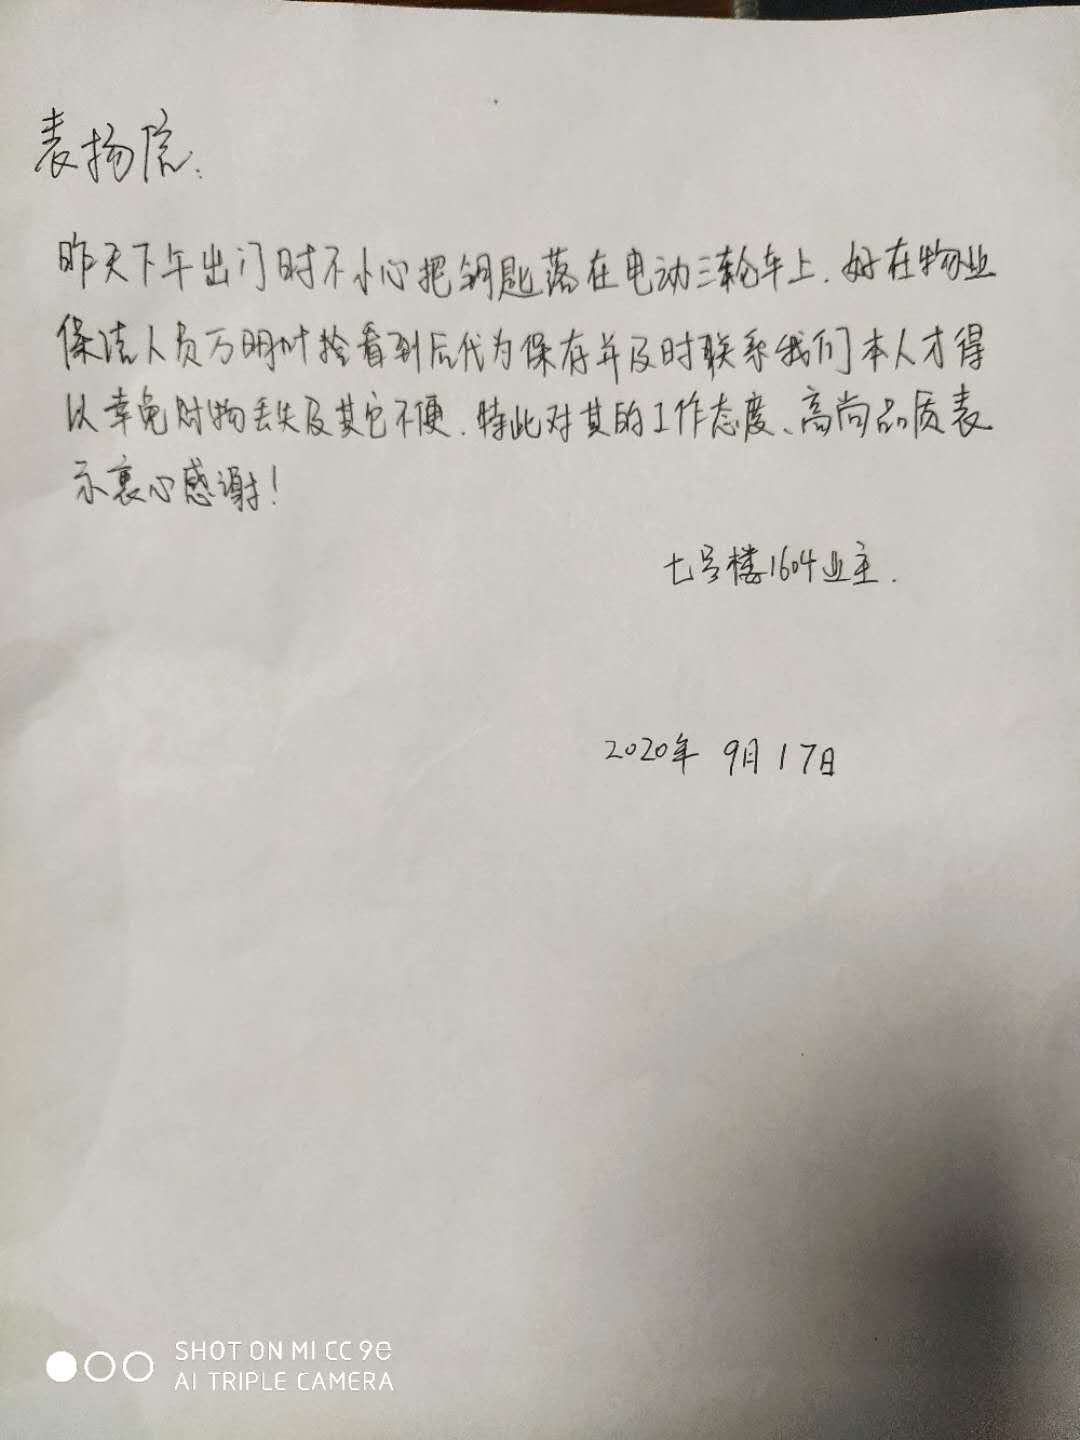 表扬信:
昨天下午出门时不小心把钥匙落在电动三轮车上.好在物业
保洁人员万明叶捡看到后代为保存并及时联系我们本人才得
以幸免财物丢失及其它不便.特此对其的工作态度、高尚品质表
示衷心感谢!
七号楼1604业主.
2020年 9月17日
SHOT ON MI CC 9e
AI TRIPLE CAMERA